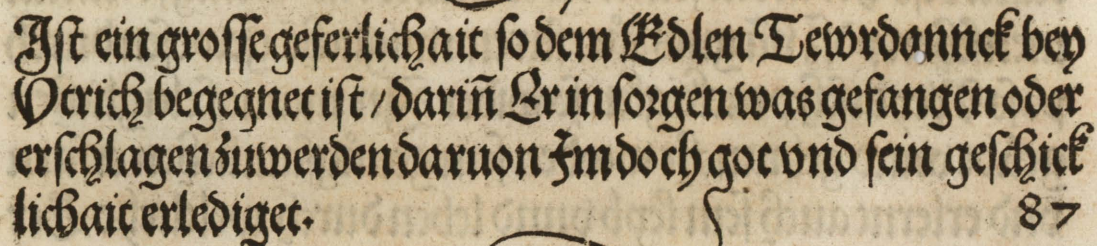 Iſt ein groſſe geferlichait ſo dem Edlen Tewrdannck bey
Vtrich begegnet iſt / darin̄ Er in ſorgen was gefangen oder
erſchlagen zuwerden daruon Im doch got vnd ſein geſchick
lichait erlediget.
87